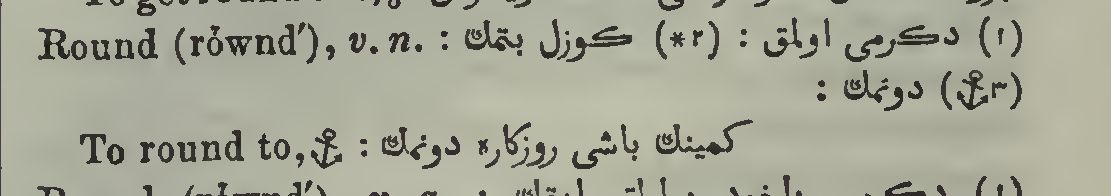 Round (rȯwnd′), v. n. : (١) دكرمی اولمق : (٢*) كوزل بتمك
(٣⚓) دونمك :
To round to, ⚓ : كمینك باشی روزكاره دونمك